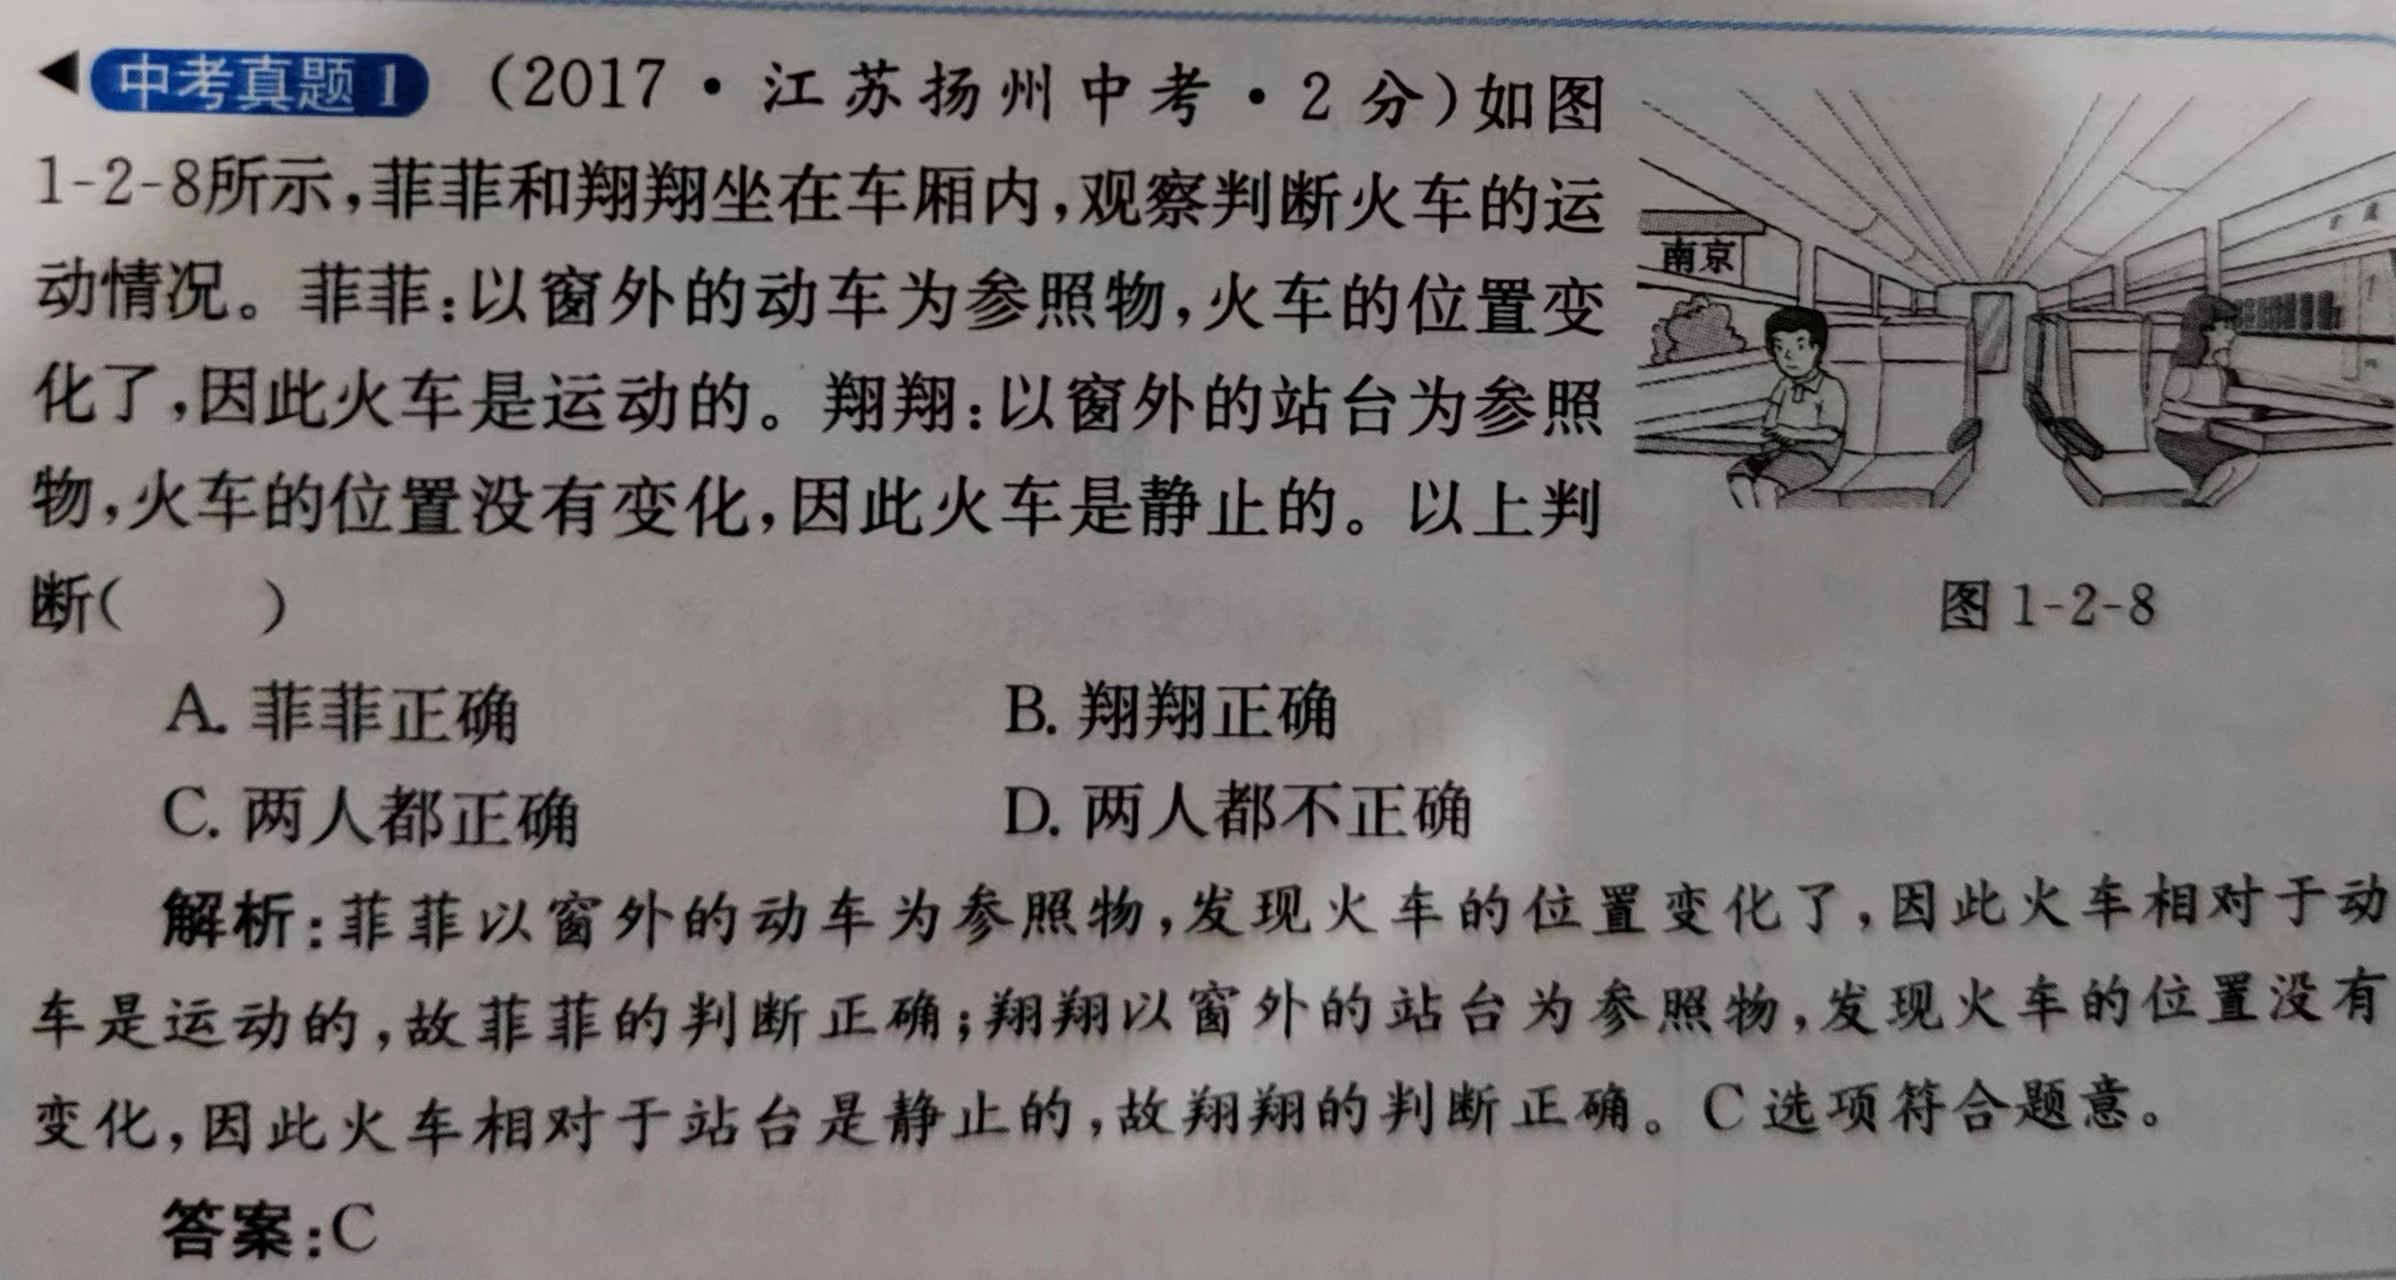 中考真题1 (2017·江苏扬州中考·2分)如图
1-2-8所示,菲菲和翔翔坐在车厢内,观察判断火车的运
动情况。菲菲:以窗外的动车为参照物,火车的位置变
化了,因此火车是运动的。翔翔:以窗外的站台为参照
物,火车的位置没有变化,因此火车是静止的。以上判
断(  )
南京
图 1-2-8
A. 菲菲正确 B. 翔翔正确
C. 两人都正确 D. 两人都不正确
解析:菲菲以窗外的动车为参照物,发现火车的位置变化了,因此火车相对于动
车是运动的,故菲菲的判断正确;翔翔以窗外的站台为参照物,发现火车的位置没有
变化,因此火车相对于站台是静止的,故翔翔的判断正确。C选项符合题意。
答案:C